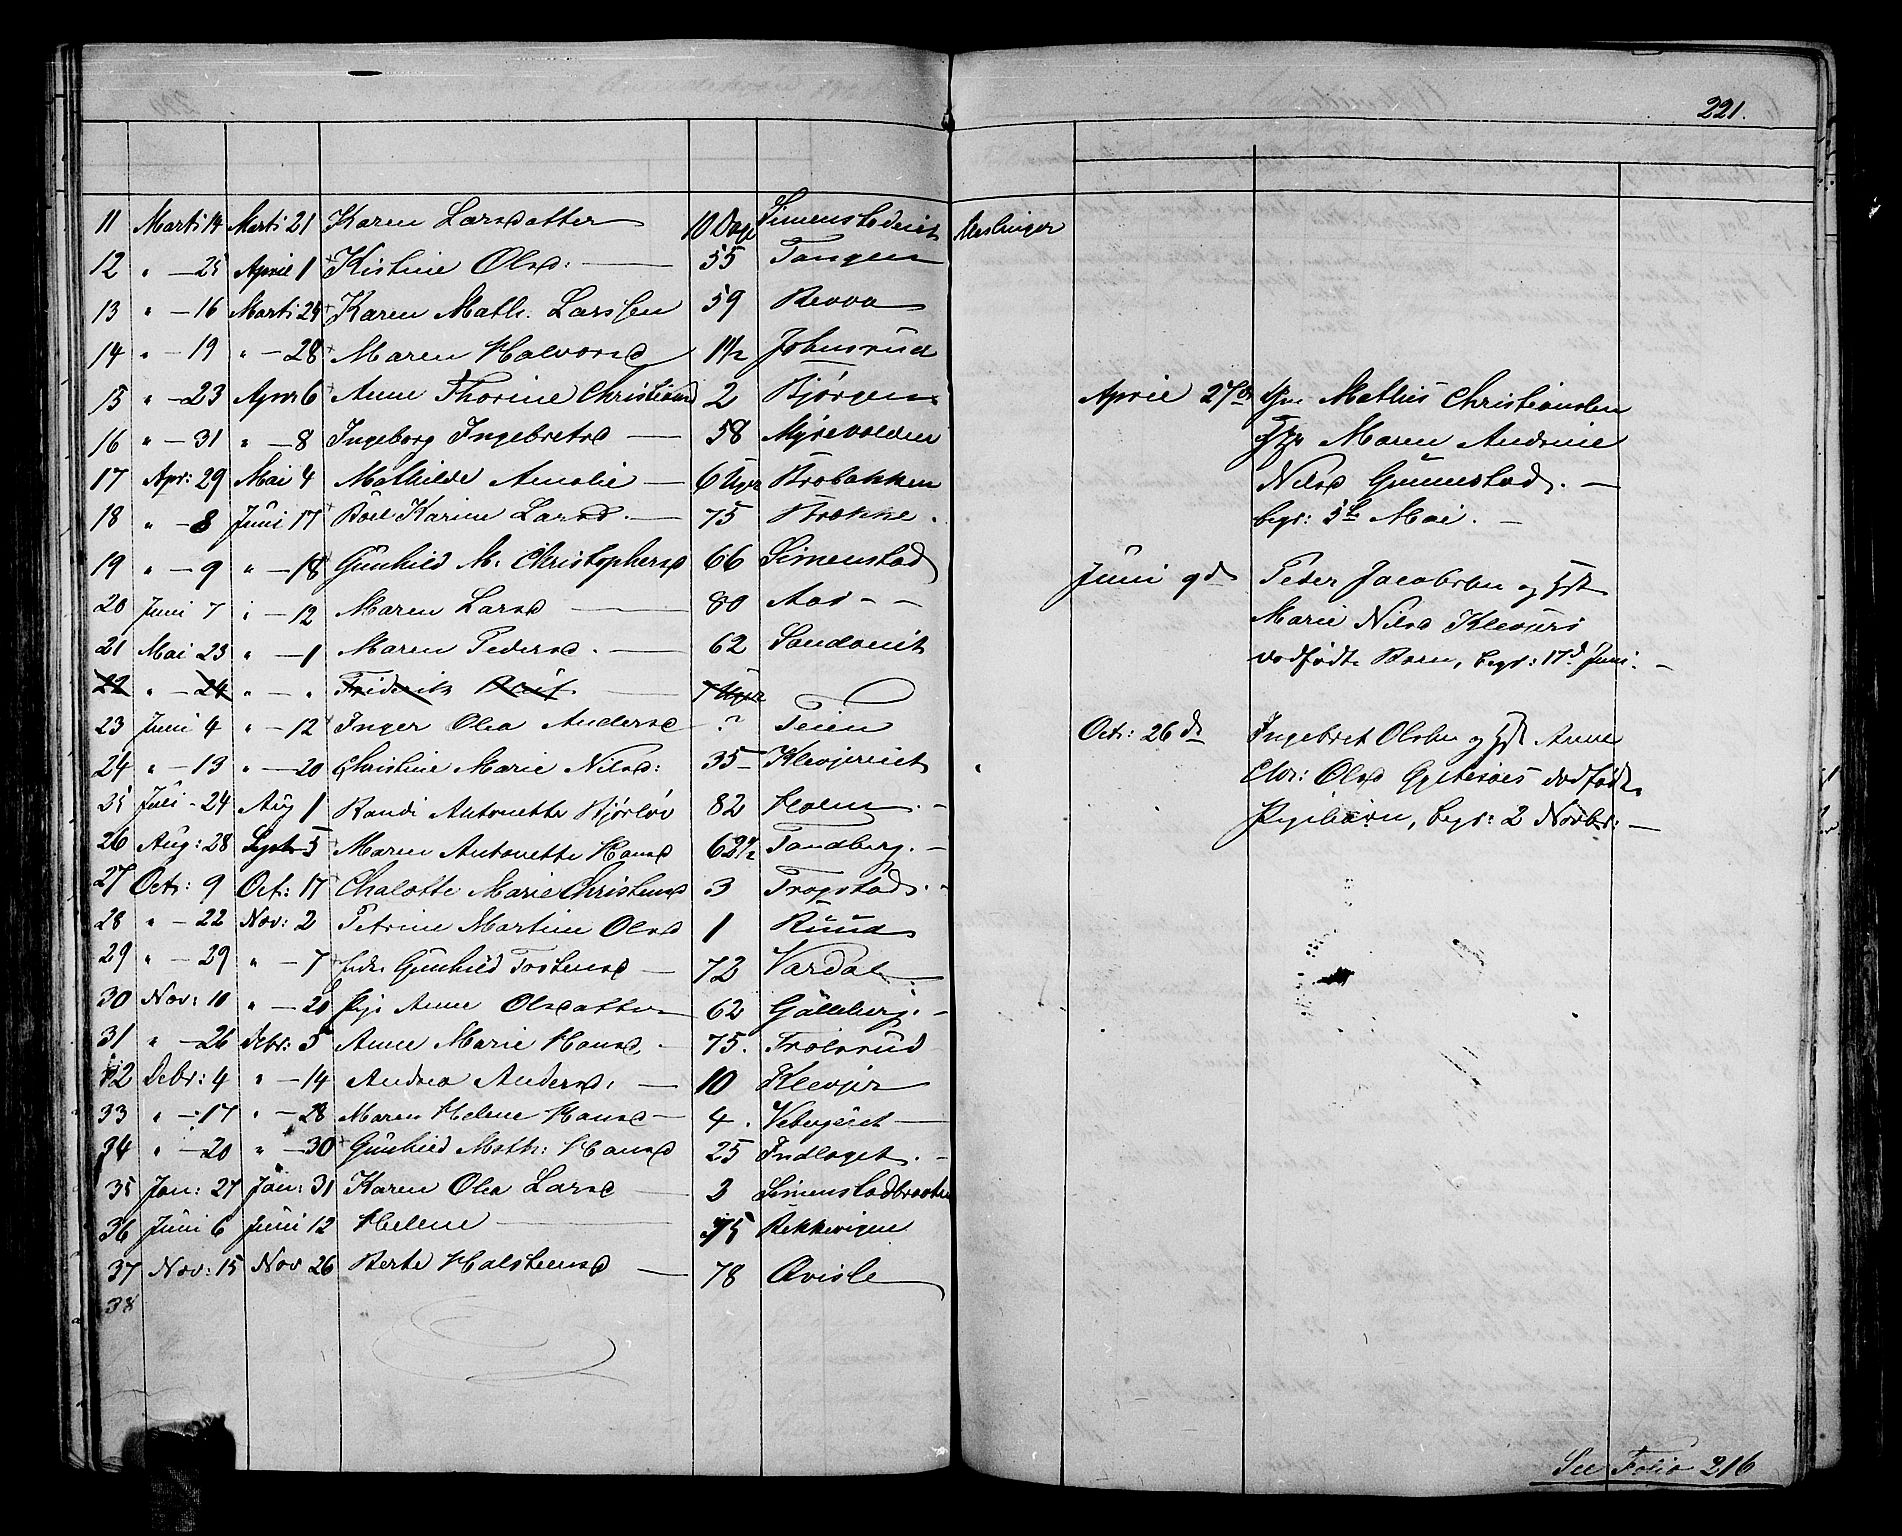 221.
11 Marti 14 Marti 21 Karen Larsdatter 10 Dage Simenstadeiet Meslinger
12 " — 25 April 1 Kistine Olsd: — 55 Tangen
13 " — 16 Marti 24 Karen Math: Larssen 59 Revva
14 " — 19 " — 28 Maren Halvorsd 1 1/2 Johnsrud
15 " — 23 Apr 6 Anne Thorine Christiansd 2 Bjørgen
16 " — 31 " — 8 Ingeborg Ingebretsd — 58 Myrevolden
17 Apr: 29 Mai 4 Mathilde Amalie — 6 Uger Brobakken
18 " — 8 Juni 17 Boel Karine Larsd. — 75 Brække.
19 " — 9 " — 18 Gunhild M. Christophersd 66 Simenstad
20 Juni 7 " — 12 Maren Larsd — 80 Aas - -
21 Mai 23 " — 1 Maren Pedersd. — 62 Sandaeiet
22 " — 24 " — " Friderik — 7 Uger
23 Juni 4 " — 12 Inger Olea Andersd — ? Teien
24 " — 13 " — 20 Christine Marie Nilsd: 35 — Klevjereiet
25 Juli - 24 Aug 1 Randi Antonette Bjørløv 82 Holm. -
26 Aug: 28 Septr 5 Maren Antonette Hansd 62 1/2 Tandberg. -
27 Octr: 9 Oct: 17 Chalotte Marie Christensd 3 Tropstad. -
28 " — 22 Nov: 2 Petrine Martine Olsd 1 Ruud
29 " — 29 " — 7 Gunhild Tostensd — 72 Vardal
30 Nov: 10 " — 20 Pige Anne Olsdatter 62 Gålleberg. -
31 " — 26 Debr: 5 Anne Marie Hansd. 75. Trolsrud
32 Debr: 4 " — 14 Andrea Andersd. — 10 Klevjer
33 " — 17 " — 28 Maren Helene Hansd — 4. Vebergeiet —
34 " — 20 " — 30 Gunhild Math: Hansd 25 Indlaget. -
35 Jan: 27 Jan: 31 Karen Olea Larsd — 3 Simenstadbraaten
36 Juni 6 Juni 12 Helene — 75 Rekkevigen
37 Nov: 15 Nov 26 Berte Halsteensd — 78 Qvisle
38
April 27de Mathis Christiansen
Maren Andrine
Nilsd Gunnestad. —
begr: 5te Mai. —
Juni 9de Peder Jacobsen og Hst
Marie Nilsd Klevjers
dødfødte Barn, begr: 17d Juni. —
Octr: 26de Ingebret Olsen og Hst Anne
Chr: Olsd dødfødte
Pigebarn, begr: 2 Novbr: —
See Folio 216